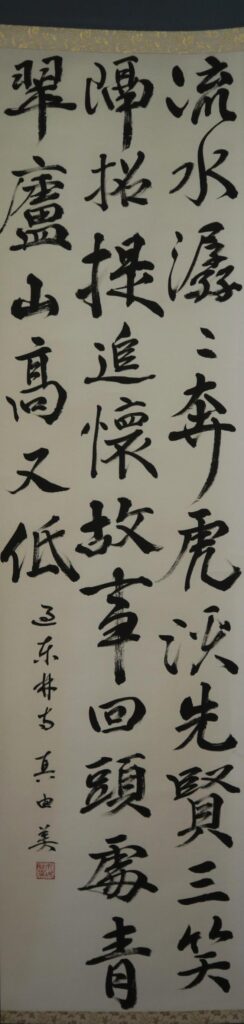 流水潺〻奔虎渓先賢三笑
隔招提追懷故事回頭處青
翠廬山高又低
過東林寺 真由美